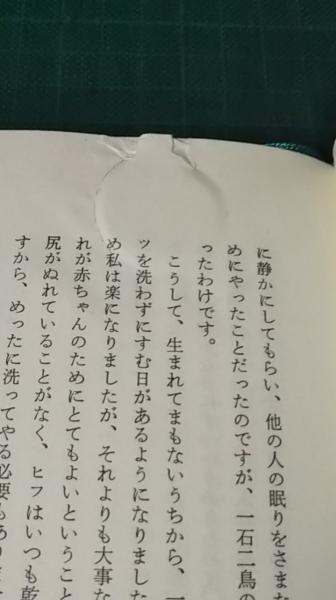 に静かにしてもらい、他の人の眠りをさまた
めにやったことだったのですが、一石二鳥の
ったわけです。
こうして、生まれてまもないうちから、一
ッを洗わずにすむ日があるようになりました
め私は楽になりましたが、それよりも大事な
れが赤ちゃんのためにとてもよいということ
尻がぬれていることがなく、ヒフはいつも乾
すから、めったに洗ってやる必要もあり